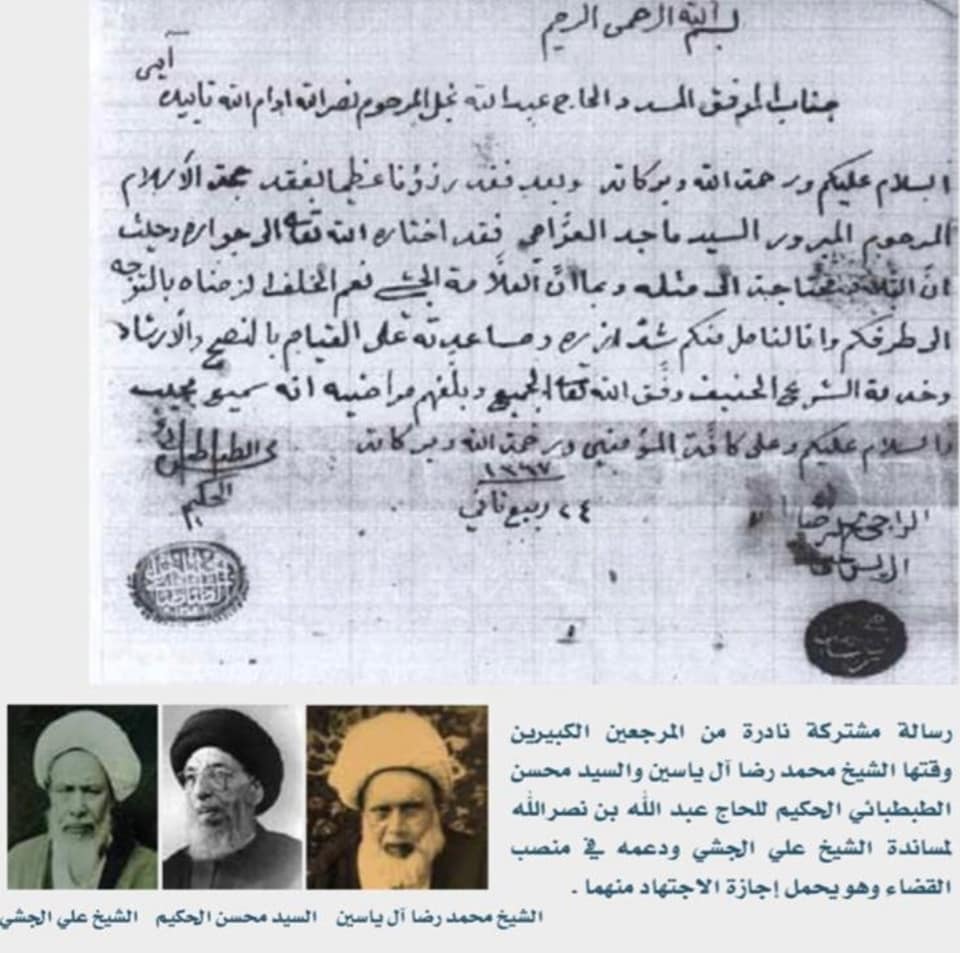 بسم الله الرحمن الرحيم
جناب الموفق المسدد الحاج عبد الله نجل المرحوم نصر الله ادام الله تاييده آمين
السلام عليكم ورحمة الله وبركاته وبعد فقد رزؤنا عظيما بفقد حجة الأسلام
المرحوم المبرور السيد ماجد العوامي فقد اختاره الله تعالى الى جواره وحيث
انّ البلاد محتاجة الى مثله وبما أنّ العلاّمة الجشي نعم الخلف لزمناه بالتوجه
الى طرفكم وانا لنامل منكم شدّ ازره ومساعدته على القيام بالنصح والأرشاد
وخدمة الشرع الحنيف وفّق الله تعالى الجميع وبلّغهم مراضيه انه سميع مجيب
والسلام عليكم وعلى كافة المؤمنين ورحمة الله وبركاته
١٣٦٧
٢٤ ربيع ثاني
الطباطبائي
الحكيم
الراجي محمد رضا
ال يس
رسالة مشتركة نادرة من المرجعين الكبيرين
وقتها الشيخ محمد رضا آل ياسين والسيد محسن
الطبطبائي الحكيم للحاج عبد الله بن نصرالله
لمساندة الشيخ علي الجشي ودعمه في منصب
القضاء وهو يحمل إجازة الاجتهاد منهما .
الشيخ محمد رضا آل ياسين
السيد محسن الحكيم
الشيخ علي الجشي